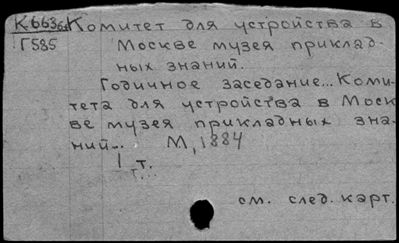 К663 Комитет для устройства в
Г585 Москве музея приклад-
ных знаний.
Годичное заседание... Коми-
тета для устройства в Моск
ве музея прикладных зна-
ний... М, 1884
1 т.
т...
см. след. карт.